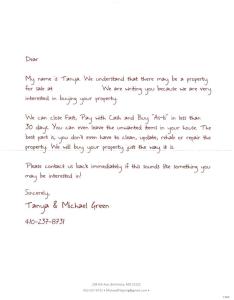 Dear
My name is Tanya. We understand that there may be a property
for sale at We are writing you because we are very
interested in buying your property.
We can close Fast, Pay with Cash and Buy "As-Is" in less than
30 days. You can even leave the unwanted items in your house. The
best part is, you don't even have to clean, update, rehab or repair the
property. We will buy your property just the way it is.
Please contact us back immediately if this sounds like something you
may be interested in!
Sincerely,
Tanya & Michael Green
410-237-8731